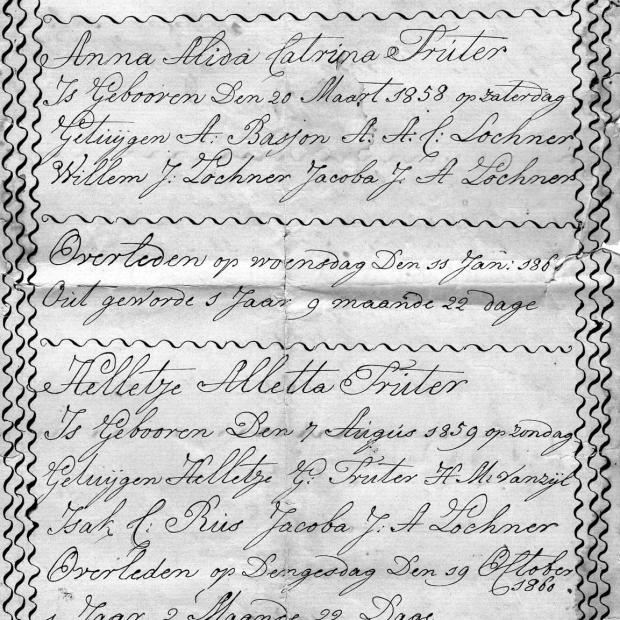 Anna Alida Catrina Truter
Is Gebooren Den 20 Maart 1858 op zaterdag
Getuijgen A: Basjon A: A: C: Lochner
Willem J: Lochner Jacoba J: A Lochner
Overleden op woensdag Den 11 Jan: 186
Out geworde 1 Jaar 9 maande 22 dage
Helletje Alletta Truter
Is Gebooren Den 7 Augus 1859 op zondag
Getuijgen Helletje G: Truter H M: vanzijl
Isak C: Rus Jacoba J: A Lochner
Overleden op Dengesdag Den 19 October
1860
1 Jaar 2 Maande 22 Dage